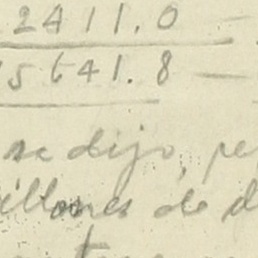 2411.0 —
15641.8 —
se dijo, pe
illones de d